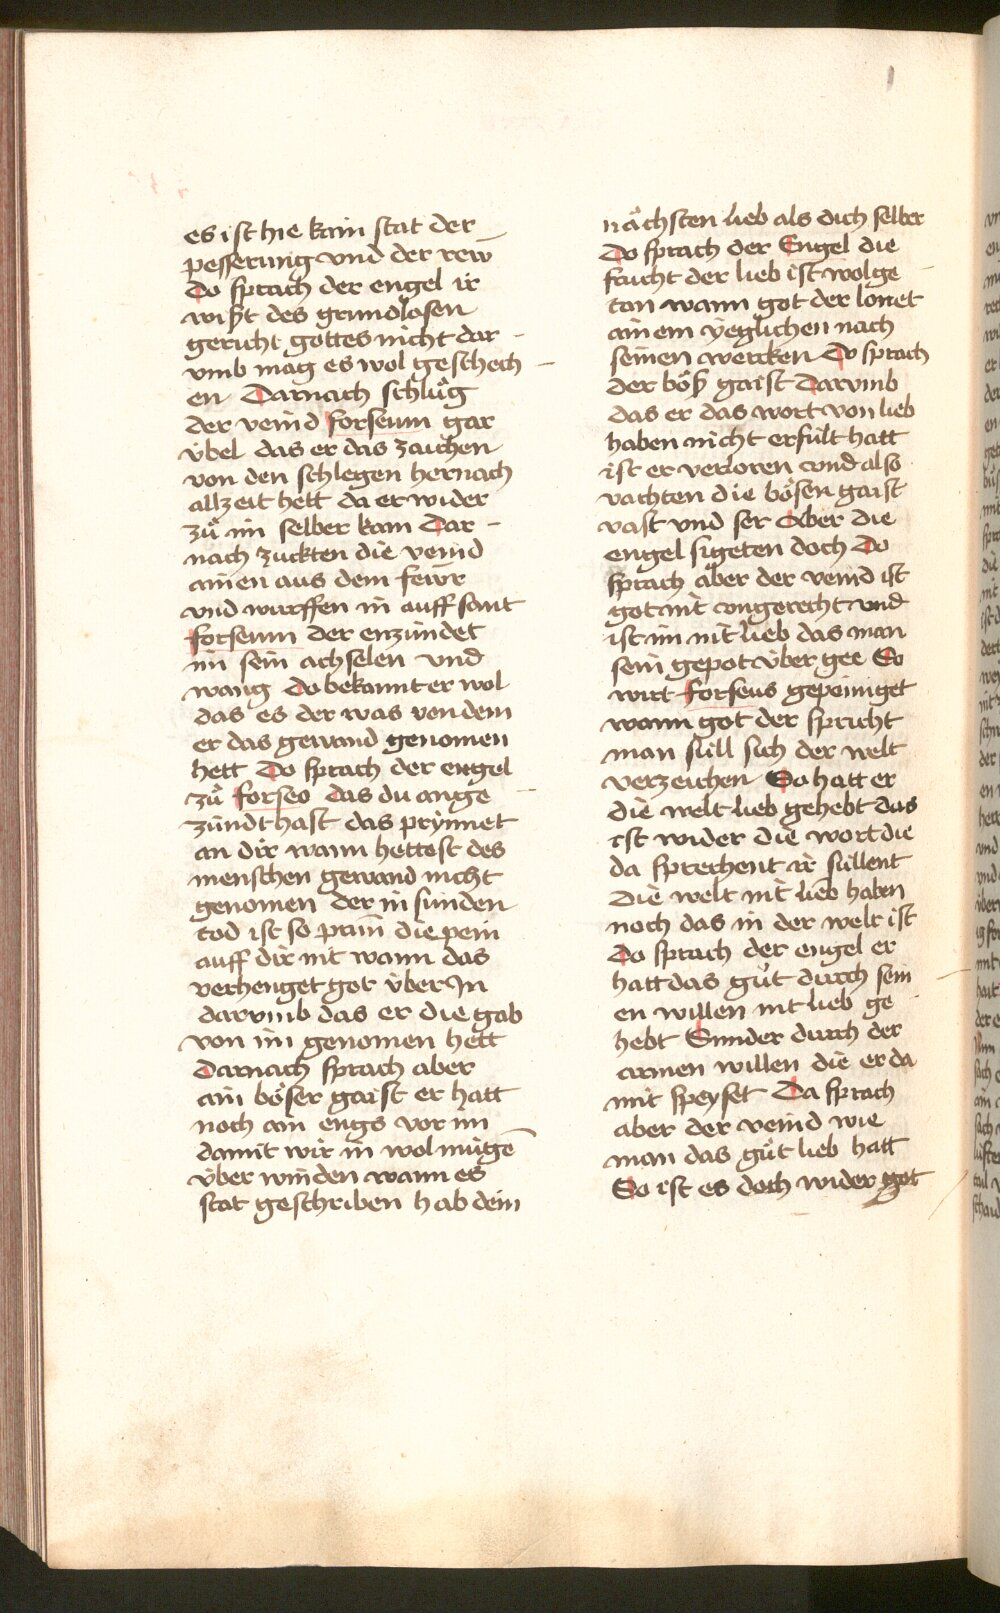 es ist hie kain stat der
pesserung vnd der rew
Do sprach der engel ir
wißt des grundlosen
gericht gottes nicht dar
vmb mag es wol geschech
en Darnach schlůg
der veind forseum gar
v̈bel das er das zaichen
von den schlegen hernach
allzeit hett da er wider
zů im selber kam Dar
nach zuckten die veind
ainen aus dem fewr
vnd wurffen in auff sant
forseum der enzündet
im sein achselen vnd
wang do bekannt er wol
das es der was von dem
er das gewand genomen
hett Do sprach der engel
zů forseo das du ange
zündt hast das prynnet
an dir wann hettest des
menschen gewand nicht
genomen der in sünden
tod ist so prann die pein
auff dir nit wann das
verhenget got v̈ber In
darvmb das er die gab
von im genomen hett
Darnach sprach aber
ain böser gaist er hatt
noch ain engs vor im
damit wir in wol mügē
v̈ber winden wann es
stat geschriben hab dein
nächsten lieb als dich selber
Do sprach der Engel die
frucht der lieb ist wolge
tan wann got der lonet
ainem yeglichen nach
seinen wercken Do sprach
der böß gaist Darvmb
das er das wort von lieb
haben nicht erfült hatt
ist er verloren vnd also
vachten die bösen gaist
vast vnd ser Aber die
engel sigeten doch Do
sprach aber der veind ist
got nit vngerecht vnd
ist im nit lieb das man
sein gepot v̈ber gee So
wirt forseus gepeiniget
wann got der spricht
man süll sich der welt
verzeichen So hatt er
die welt lieb gehebt das
ist wider die wort die
da sprechent ir süllent
Die welt nit lieb haben
noch das in der welt ist
Do sprach der engel er
hatt das gůt durch sein
en willen nit lieb ge
hebt Sunder durch der
armen willen die er da
mit speyset Da sprach
aber der veind wie
man das gůt lieb hatt
So ist es doch wider got